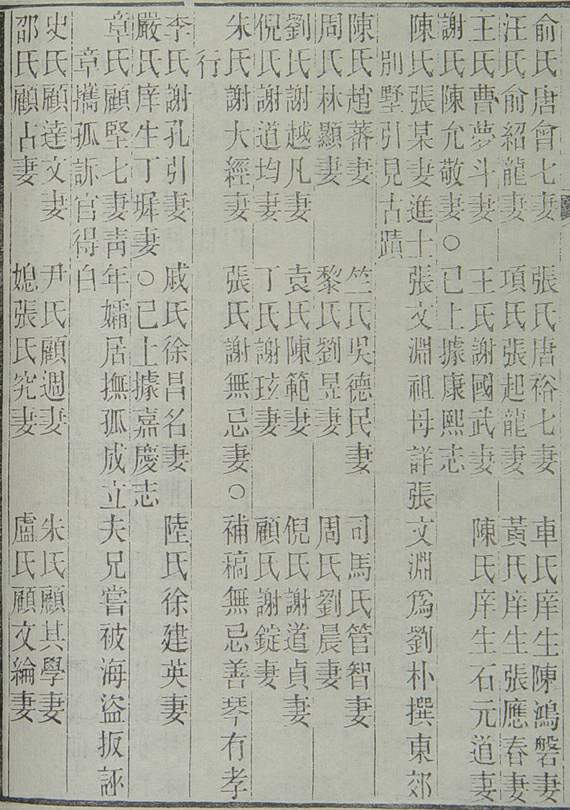 俞氏唐會七妻 張氏唐裕七妻 車氏庠生陳鴻磐妻
汪氏俞紹龍妻 項氏張起龍妻 黃氏庠生張應春妻
王氏曹夢斗妻 王氏謝國武妻 陳氏庠生石元道妻
謝氏陳允敬妻○已上據康熙志
陳氏張某妻進士張文淵祖母詳張文淵爲劉朴撰東郊
別墅引見古蹟
陳氏趙蕃妻 竺氏吳德民妻 司馬氏管智妻
周氏林顯妻 黎氏劉昱妻 周氏劉晨妻
劉氏謝越凡妻 袁氏陳範妻 倪氏謝道貞妻
倪氏謝道均妻 丁氏謝玹妻 顧氏謝錠妻
朱氏謝大經妻 張氏謝無忌妻○補稿無忌善琴有孝
行
李氏謝孔引妻 戚氏徐昌名妻 陸氏徐建英妻
嚴氏庠生丁墀妻○已上據嘉慶志
章氏顧堅七妻靑年孀居撫孤成立夫兄嘗被海盜扳誣
章攜孤訴官得白
史氏顧達文妻 尹氏顧週妻 朱氏顧其學妻
邵氏顧占妻 媳張氏究妻 盧氏顧文綸妻